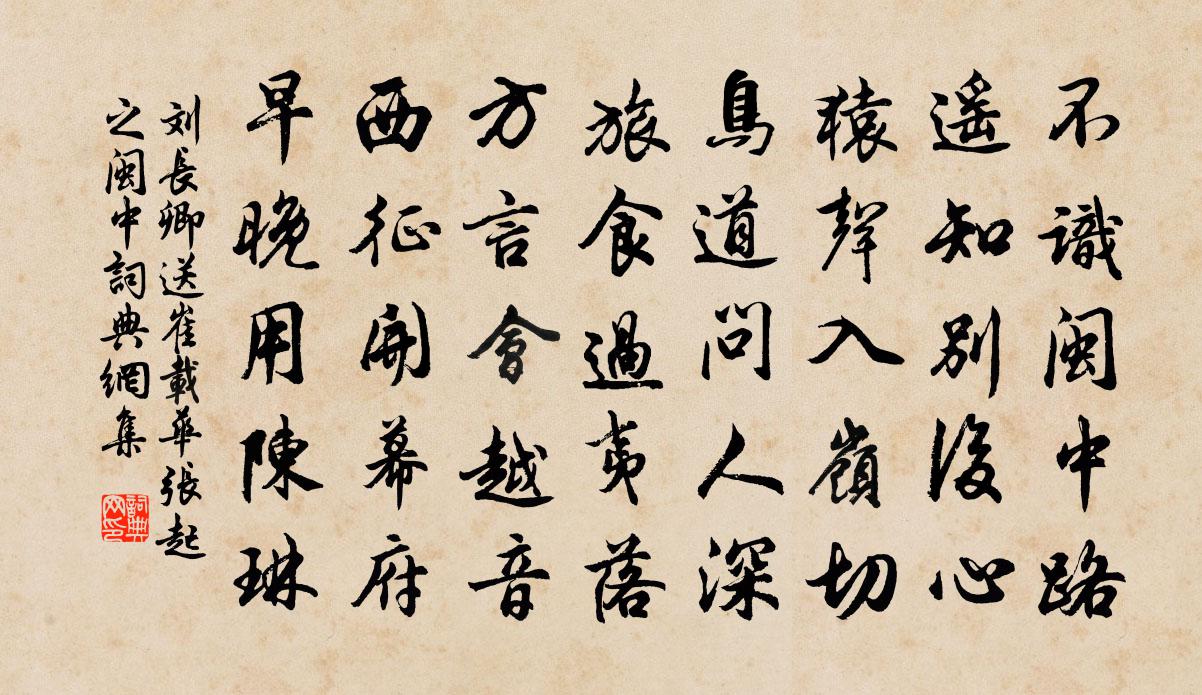 不識閩中路
遥知別後心
猿聲入嶺切
鳥道問人深
旅食過夷落
方言會越音
西征開幕府
早晚用陳琳
刘長卿送崔載華張起
之閩中詞典網集
詞典网印